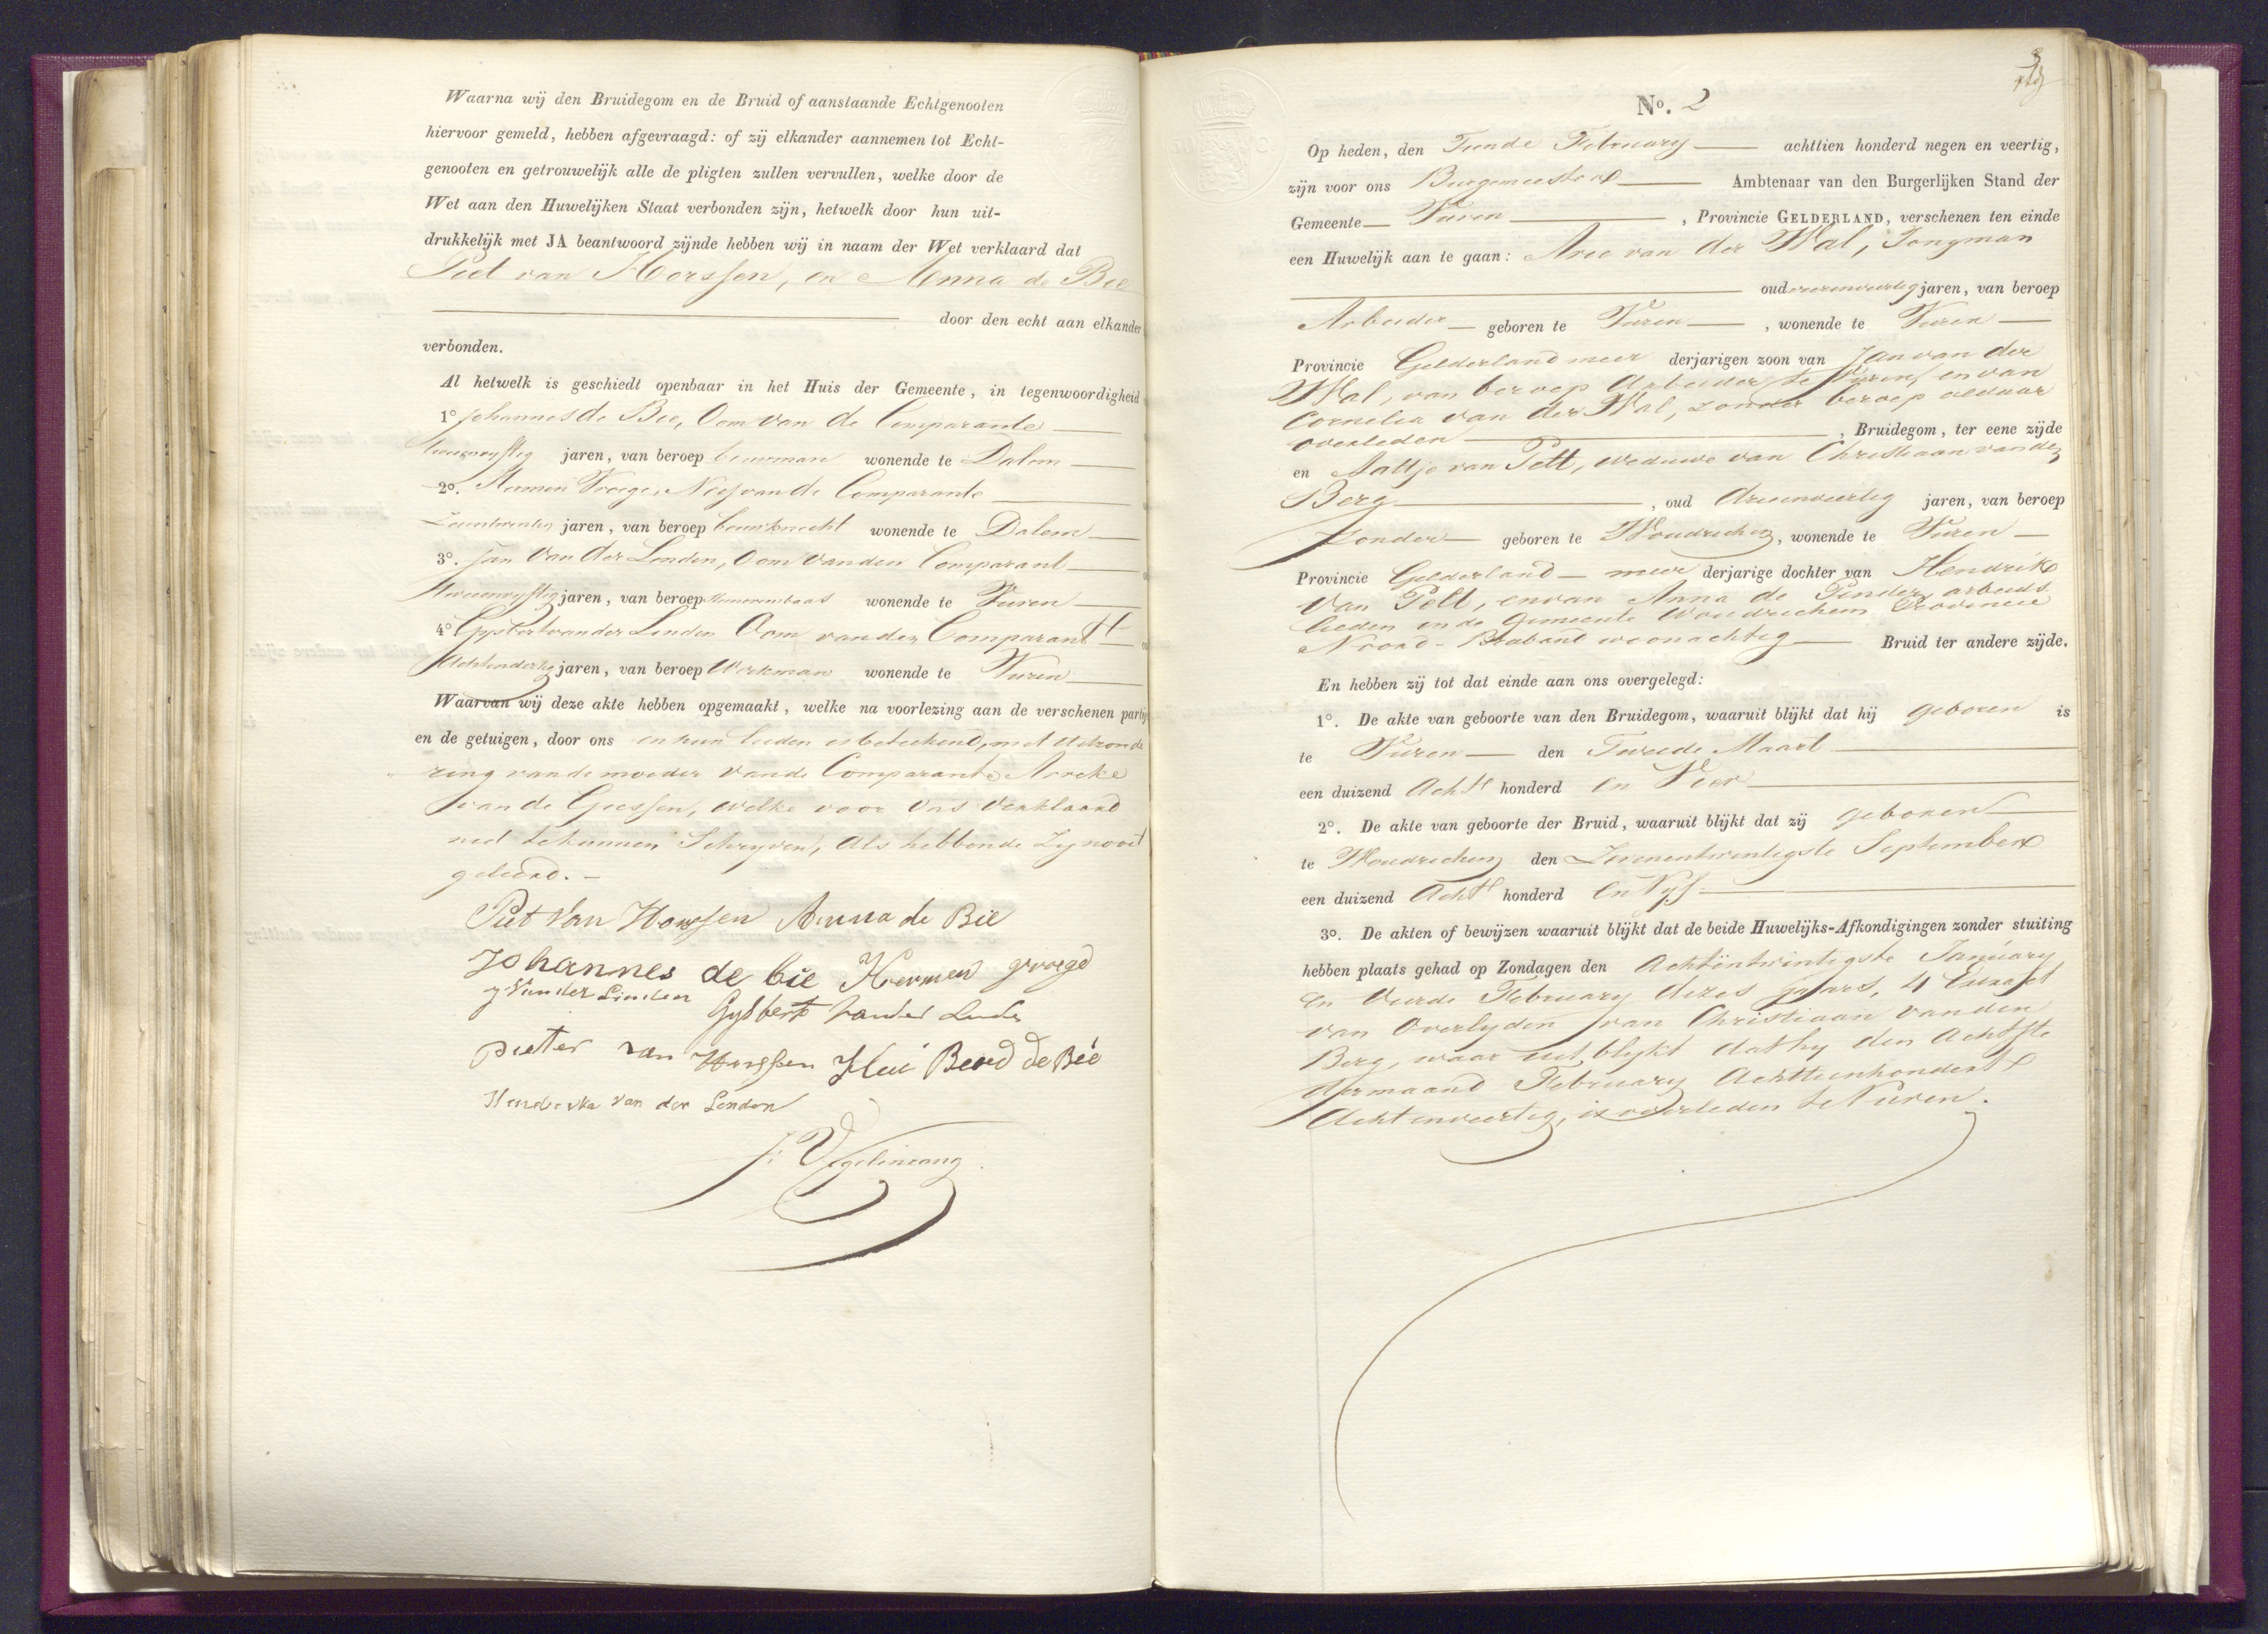 Waarna wij den Bruidegom en de Bruid of aanstaande Echtgenooten
hiervoor gemeld, hebben afgevraagd: of zij elkander aannemen tot Echt-
genooten en getrouwelijk alle de pligten zullen vervullen, welke door de
Wet aan den Huwelijken Staat verbonden zijn, hetwelk door hun uit-
drukkelijk met JA beantwoord zijnde hebben wij in naam der Wet verklaard dat
Piet van Horssen, en Anna de Bie
door den echt aan elkander
verbonden.
Al hetwelk is geschiedt openbaar in het Huis der Gemeente, in tegenwoordigheid
1º Johannes de Bie, Oom van de Comparante
jaren, van beroep bouwman wonende te Dalem
2º. Hermen Vroege, Neef van de Comparante
jaren, van beroep bouwknecht wonende te Dalem
3º. Jan van der Linden, Oom van den Comparant
jaren, van beroep wonende te Vuren
4º Gysbert van der Linden Oom van den Comparant
Achtendertig jaren, van beroep Werkman wonende te Vuren
Waarvan wij deze akte hebben opgemaakt, welke na voorlezing aan de verschenen
en de getuigen, door ons en hun lieden is beteekend, met uitzonde
ring van de moeder van de Comparante
van de Giessen, welke voor ons verklaard
niet te kunnen Schryven, als hebbende Zy nooit
geleerd. —
Piet Van Horssen Anna de Bie
Johannes de bie Hermen vroege
J Van der Linden Gysbert van der Linden
pieter van Horssen de Bie
van der Linden

No. 2
3
Op heden, den Tiende February achttien honderd negen en veertig,
zijn voor ons Burgemeester Ambtenaar van den Burgerlijken Stand der
Gemeente Vuren, Provincie GELDERLAND, verschenen ten einde
een Huwelijk aan te gaan: Arie van der Wal, Jongman
oud vierenveertig jaren, van beroep
Arbeider geboren te Vuren, wonende te Vuren
Provincie Gelderland meer derjarigen zoon van Jan van der
Wal, van beroep Arbeider te Vuren, en van
Cornelia van der Wal, zonder beroep aldaar
overleden, Bruidegom, ter eene zijde
en Aaltje van Pelt, weduwe van Christiaan van den
Berg, oud drieenveertig jaren, van beroep
Zonder geboren te Woudrichem, wonende te Vuren
Provincie Gelderland meer derjarige dochter van Hendrik
van Pelt, en van Anna de Pender, arbeids
lieden in de Gemeente Woudrichem Provincie
Noord-Braband woonachtig Bruid ter andere zijde.
En hebben zij tot dat einde aan ons overgelegd:
1º. De akte van geboorte van den Bruidegom, waaruit blijkt dat hij geboren is
te Vuren den Tweede Maart
een duizend Acht honderd en Vier
2º. De akte van geboorte der Bruid, waaruit blijkt dat zij geboren
te Woudrichem den Zevenentwintigste September
een duizend Acht honderd en Vyf
3º. De akten of bewijzen waaruit blijkt dat de beide Huwelijks-Afkondigingen zonder stuiting
hebben plaats gehad op Zondagen den Achtëntwintigste January
en Vierde February dezes jaars, 4 Extract
van Overlyden van Christiaan van den
Berg, waar uit blykt dat hy den Achtste
der maand February Achttienhondert
Achtenveertig, is overleden te Vuren.